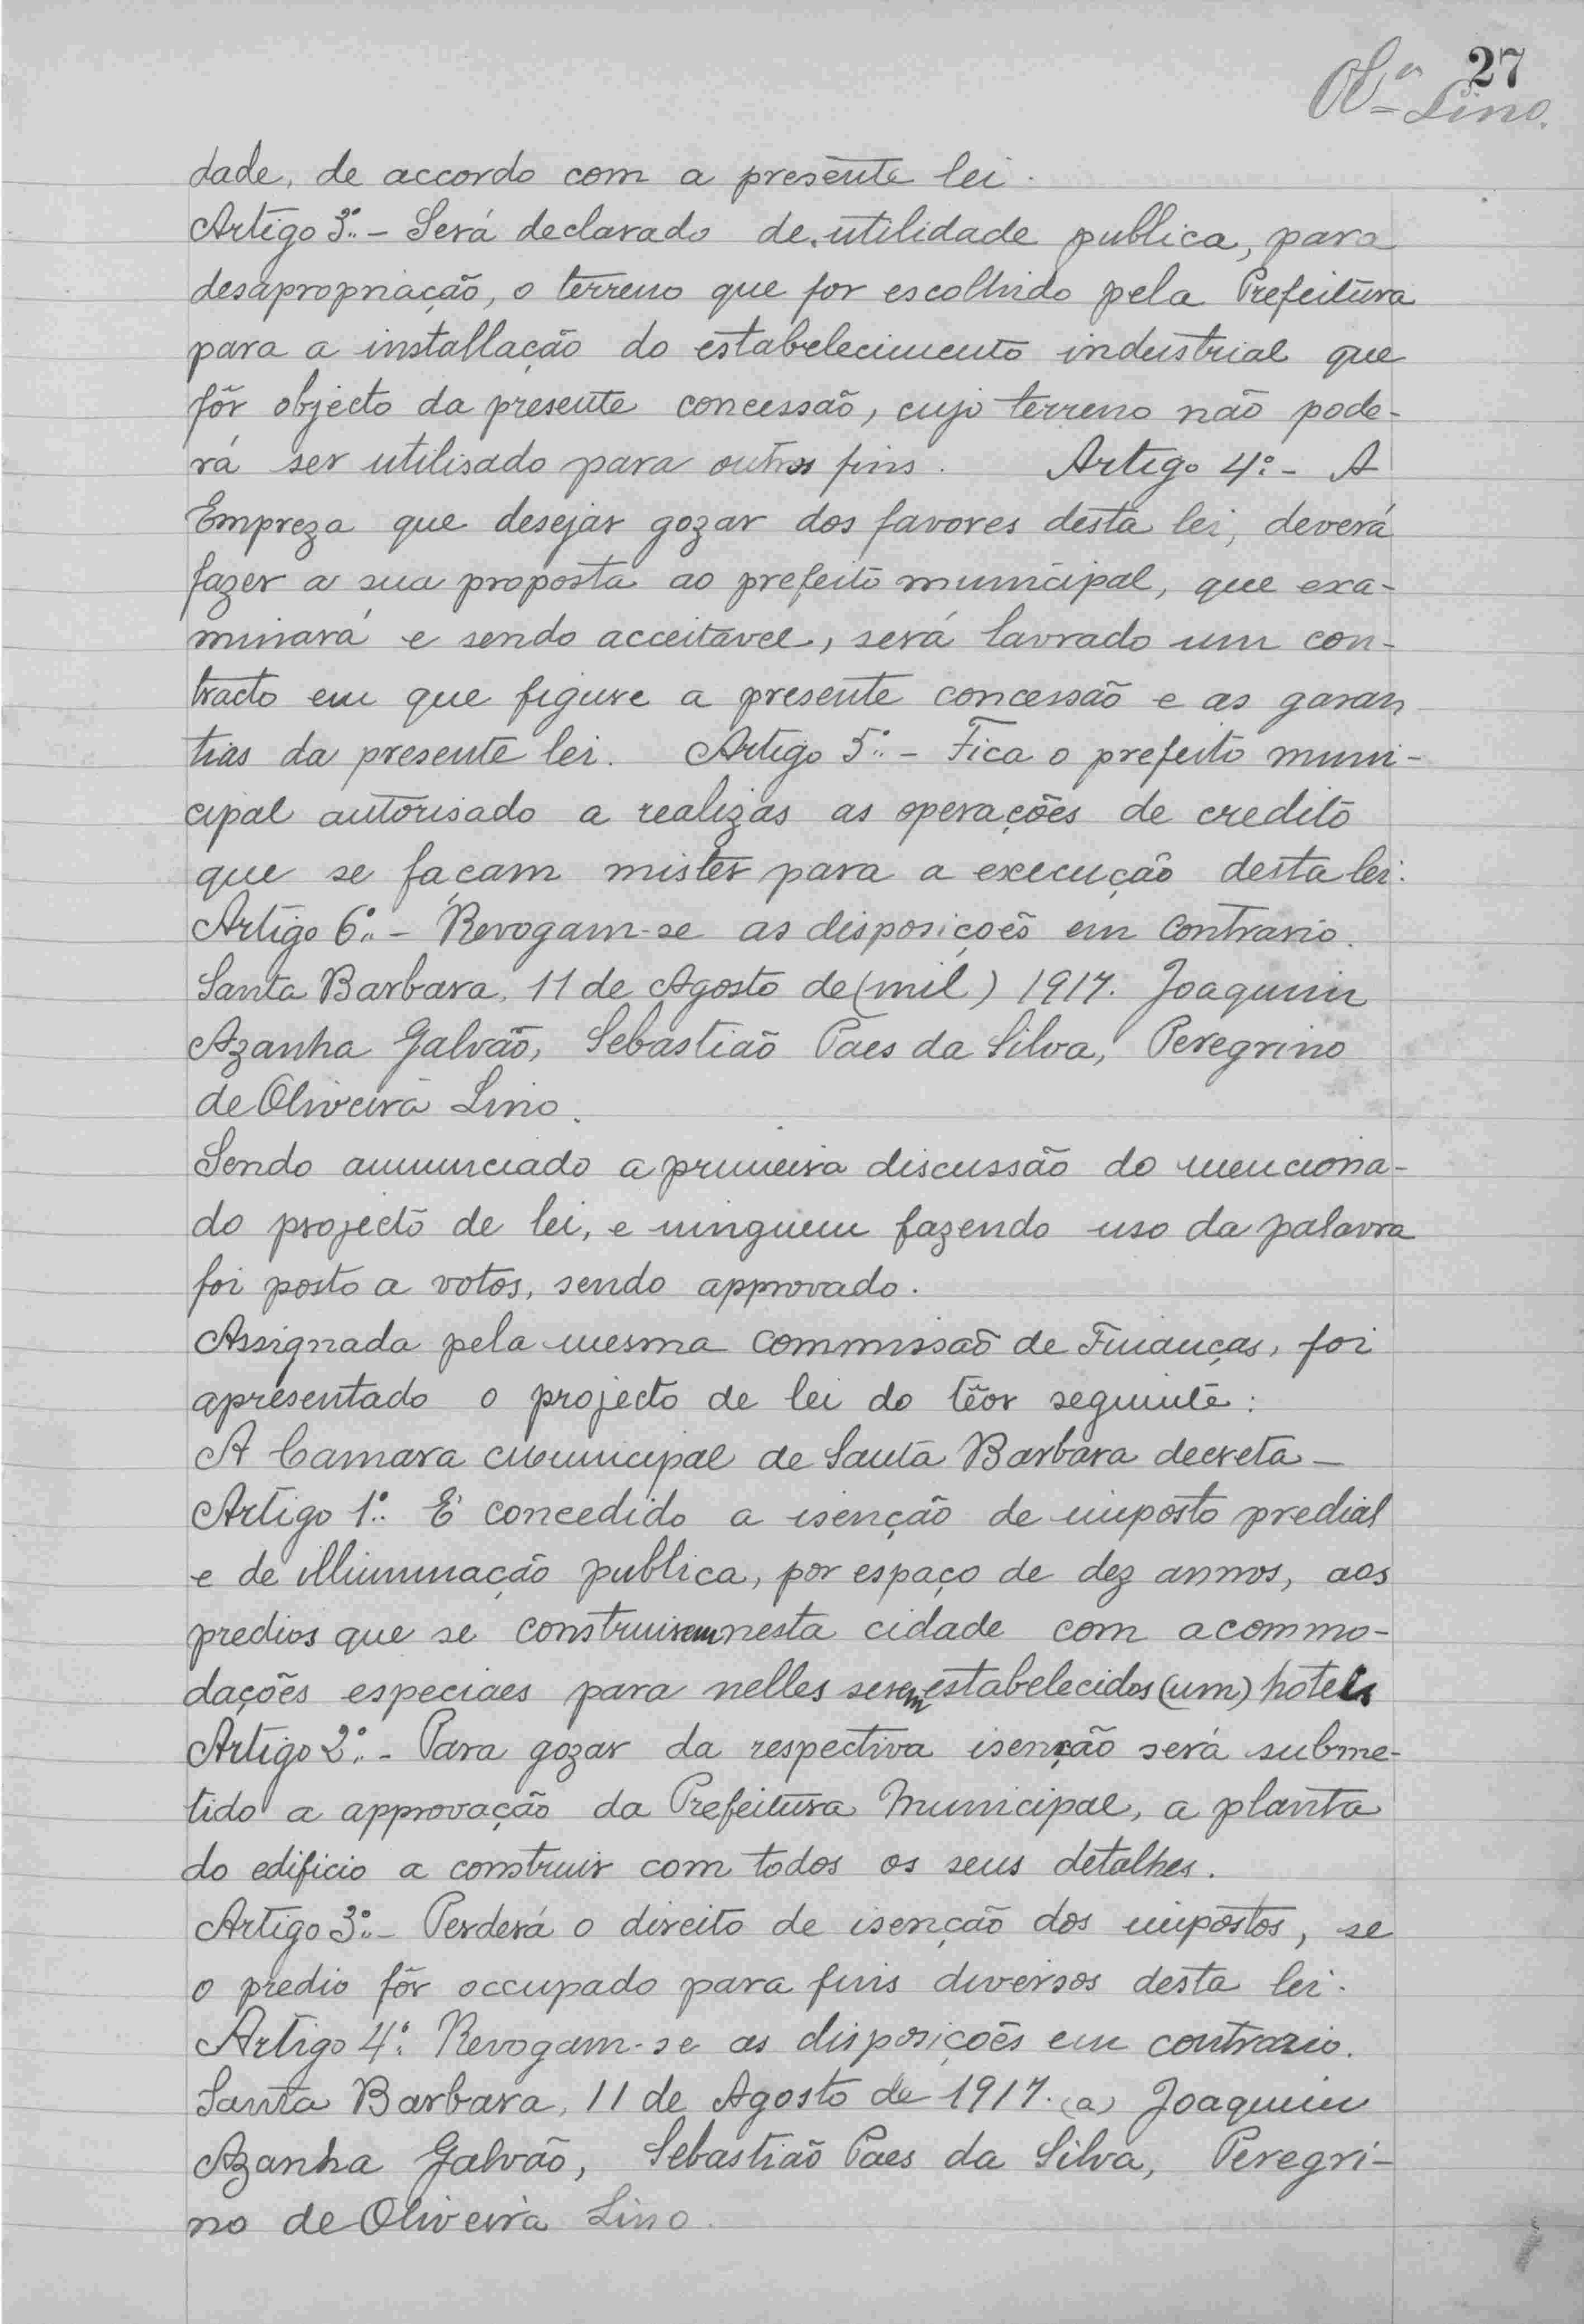 27
Olª Lino.
dade, de accordo com a presente lei.
Artigo 3º.- Será declarado de utilidade publica, para
desapropriação, o terreno que for escolhido pela Prefeitura
para a installação do estabelecimento industrial que
fôr objecto da presente concessão, cujo terreno não pode-
rá ser utilisado para outros fins. Artigo 4º.- A
Empreza que desejar gozar dos favores desta lei, deverá
fazer a sua proposta ao prefeito municipal, que exa-
minará e sendo acceitavel, será lavrado um con-
tracto em que figure a presente concessão e as garan
tias da presente lei. Artigo 5º.- Fica o prefeito muni-
cipal autorisado a realizas as operações de credito
que se façam mister para a execução desta lei.
Artigo 6º.- Revogam-se as disposições em contrario.
Santa Barbara, 11 de Agosto de (mil) 1917. Joaquim
Azanha Galvão, Sebastião Paes da Silva, Peregrino
de Oliveira Lino.
Sendo annunciado a primeira discussão do menciona-
do projecto de lei, e ninguem fazendo uso da palavra
foi posto a votos, sendo approvado.
Assignada pela mesma Commissão de Finanças, foi
apresentado o projecto de lei do têor seguinte:
A Camara Municipal de Santa Barbara decreta-
Artigo 1º. E' concedido a isenção de imposto predial
e de illuminação publica, por espaço de dez annos, aos
predios que se construirem nesta cidade com acommo-
dações especiaes para nelles serem estabelecidos (um) hoteis
Artigo 2º.- Para gozar da respectiva isenção será subme-
tido a approvação da Prefeitura Municipal, a planta
do edificio a construir com todos os seus detalhes.
Artigo 3º.- Perderá o direito de isenção dos impostos, se
o predio fôr occupado para fins diversos desta lei.
Artigo 4º. Revogam-se as disposições em contrario.
Santa Barbara, 11 de Agosto de 1917. (a) Joaquim
Azanha Galvão, Sebastião Paes da Silva, Peregri-
no de Oliveira Lino.